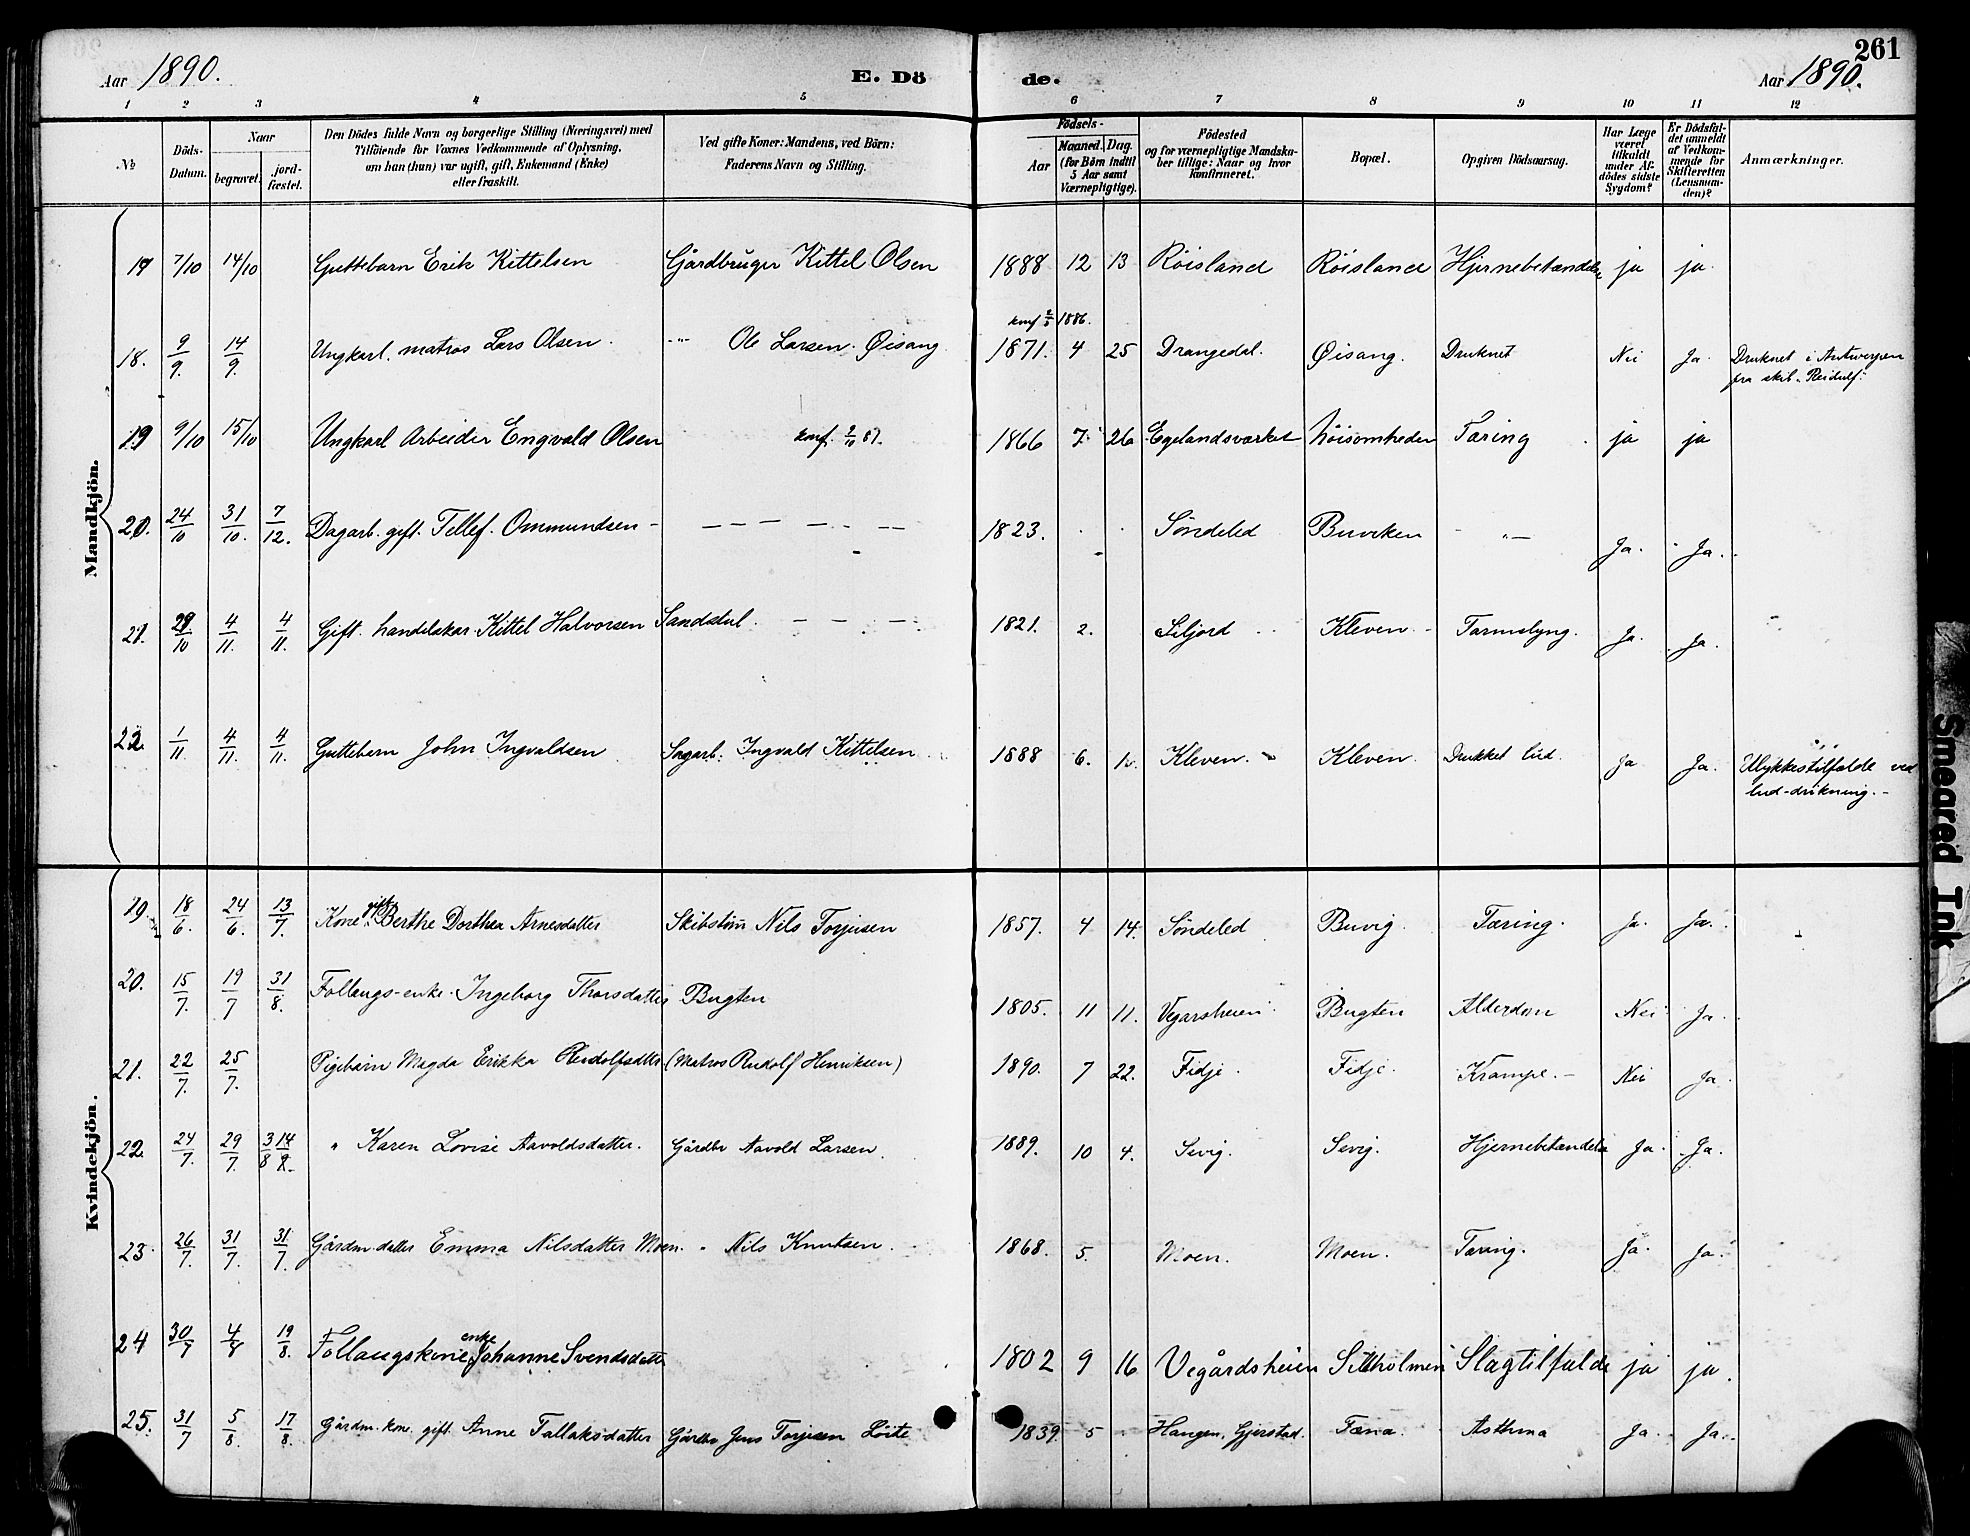 261
Aar 1890. E. Dö de. Aar 1890.
1 2 3 4 5 6 7 8 9 10 11 12
№ Döds-Datum. Naar begravet. jord-fæstet. Den Dödes fulde Navn og borgerlige Stilling (Næringsvei) med Tilföiende for Voxnes Vedkommende af Oplysning, om han (hun) var ugift, gift, Enkemand (Enke) eller fraskilt. Ved gifte Koner: Mandens, ved Börn: Faderens Navn og Stilling. Födsels- Aar Maaned. Dag. (for Börn indtil 5 Aar samt Værnepligtige). Födested og for værnepligtige Mandskaber tillige: Naar og hvor konfirmeret. Bopæl. Opgiven Dödsaarsag. Har Læge været tilkaldt under Afdödes sidste Sygdom? Er Dödsfaldet anmeldt af Vedkommende for Skifteretten (Lensmanden)? Anmærkninger.
Mandkjön.
19 7/10 14/10 Guttebarn Erik Kittelsen Gårdbruger Kittel Olsen 1888 12 13 Röisland Röisland Hjernebetændelse ja ja.
konf 1886.
18. 9/9. 14/9. Ungkarl. matros Lars Olsen. -"- Ole Larsen Øisang 1871. 4 25 Drangedal. Øisang. Druknet Nei Ja. Druknet i Antwerpen
fra skib "Reidulf."
19 9/10 15/10 Ungkarl Arbeider Engvald Olsen konf. 1866 7. 26 Egelandsværket Tæring ja ja
20. 24/10 31/10. 7/12. Dagarb. gift. Tellef. Ommundsen - — — — — — 1823. Söndeled Buviken -"- Ja. Ja.
21. 29/10 4/11. 4/11. Gift. handelskar. Kittel Halvorsen Sandstul. — — — 1821. 2. Siljord Kleven. Tarmslyng. Ja. Ja.
22. 1/11. 4/11. 4/11. Guttebarn John Ingvaldsen Sagarb. Ingvald Kittelsen 1888 6. Kleven. Kleven. Drukket lud. ja Ja. Ulykkestilfælde ved
lud-drikning. -
Kvindekjön.
19. 18/6. 24/6. 13/7. Kone gift Berthe Dorthea Arnesdatter Skibstöm Nils Torjusen 1857. 4 14. Söndeled Buvig. Tæring. Ja. Ja.
20. 15/7. 19/7 31/8. Follaugs-enke. Ingeborg Thorsdatter Bugten 1805. 11 11. Vegarsheien Bugten Alderdom Nei Ja.
21. 22/7. 25/7. Pigebarn Magda Erikka (Matros Rudolf Henriksen) 1890. 7 22. Fidje. Fidje. Krampe. - Nei Ja.
22. 24/7. 29/7. " Karen Lovise Aavoldsdatter. Gårdbr Aavold Larsen. 1889. 10 4. Sevig. Sevig. Hjernebetændelse Ja. Ja.
23. 26/7. 31/7. 31/7. Gårdm. datter Emma Nilsdatter Moen. " Nils Knutsen. 1868. 5. Moen. Moen. Tæring. Ja. Ja.
24 30/7 4/8 19/8. Follaugskone enke Johanne Svendsdatter 1802 9 16 Vegårdsheien Slagtilfælde ja ja.
25. 31/7 5/8. 17/8. Gårdm. kone. gift. Anne Tallaksdatter Gårdbr Jens Torjusen Löite 1839. 5 Haugen, Gjerstad. Asthma Ja. Ja.
Smeared Ink